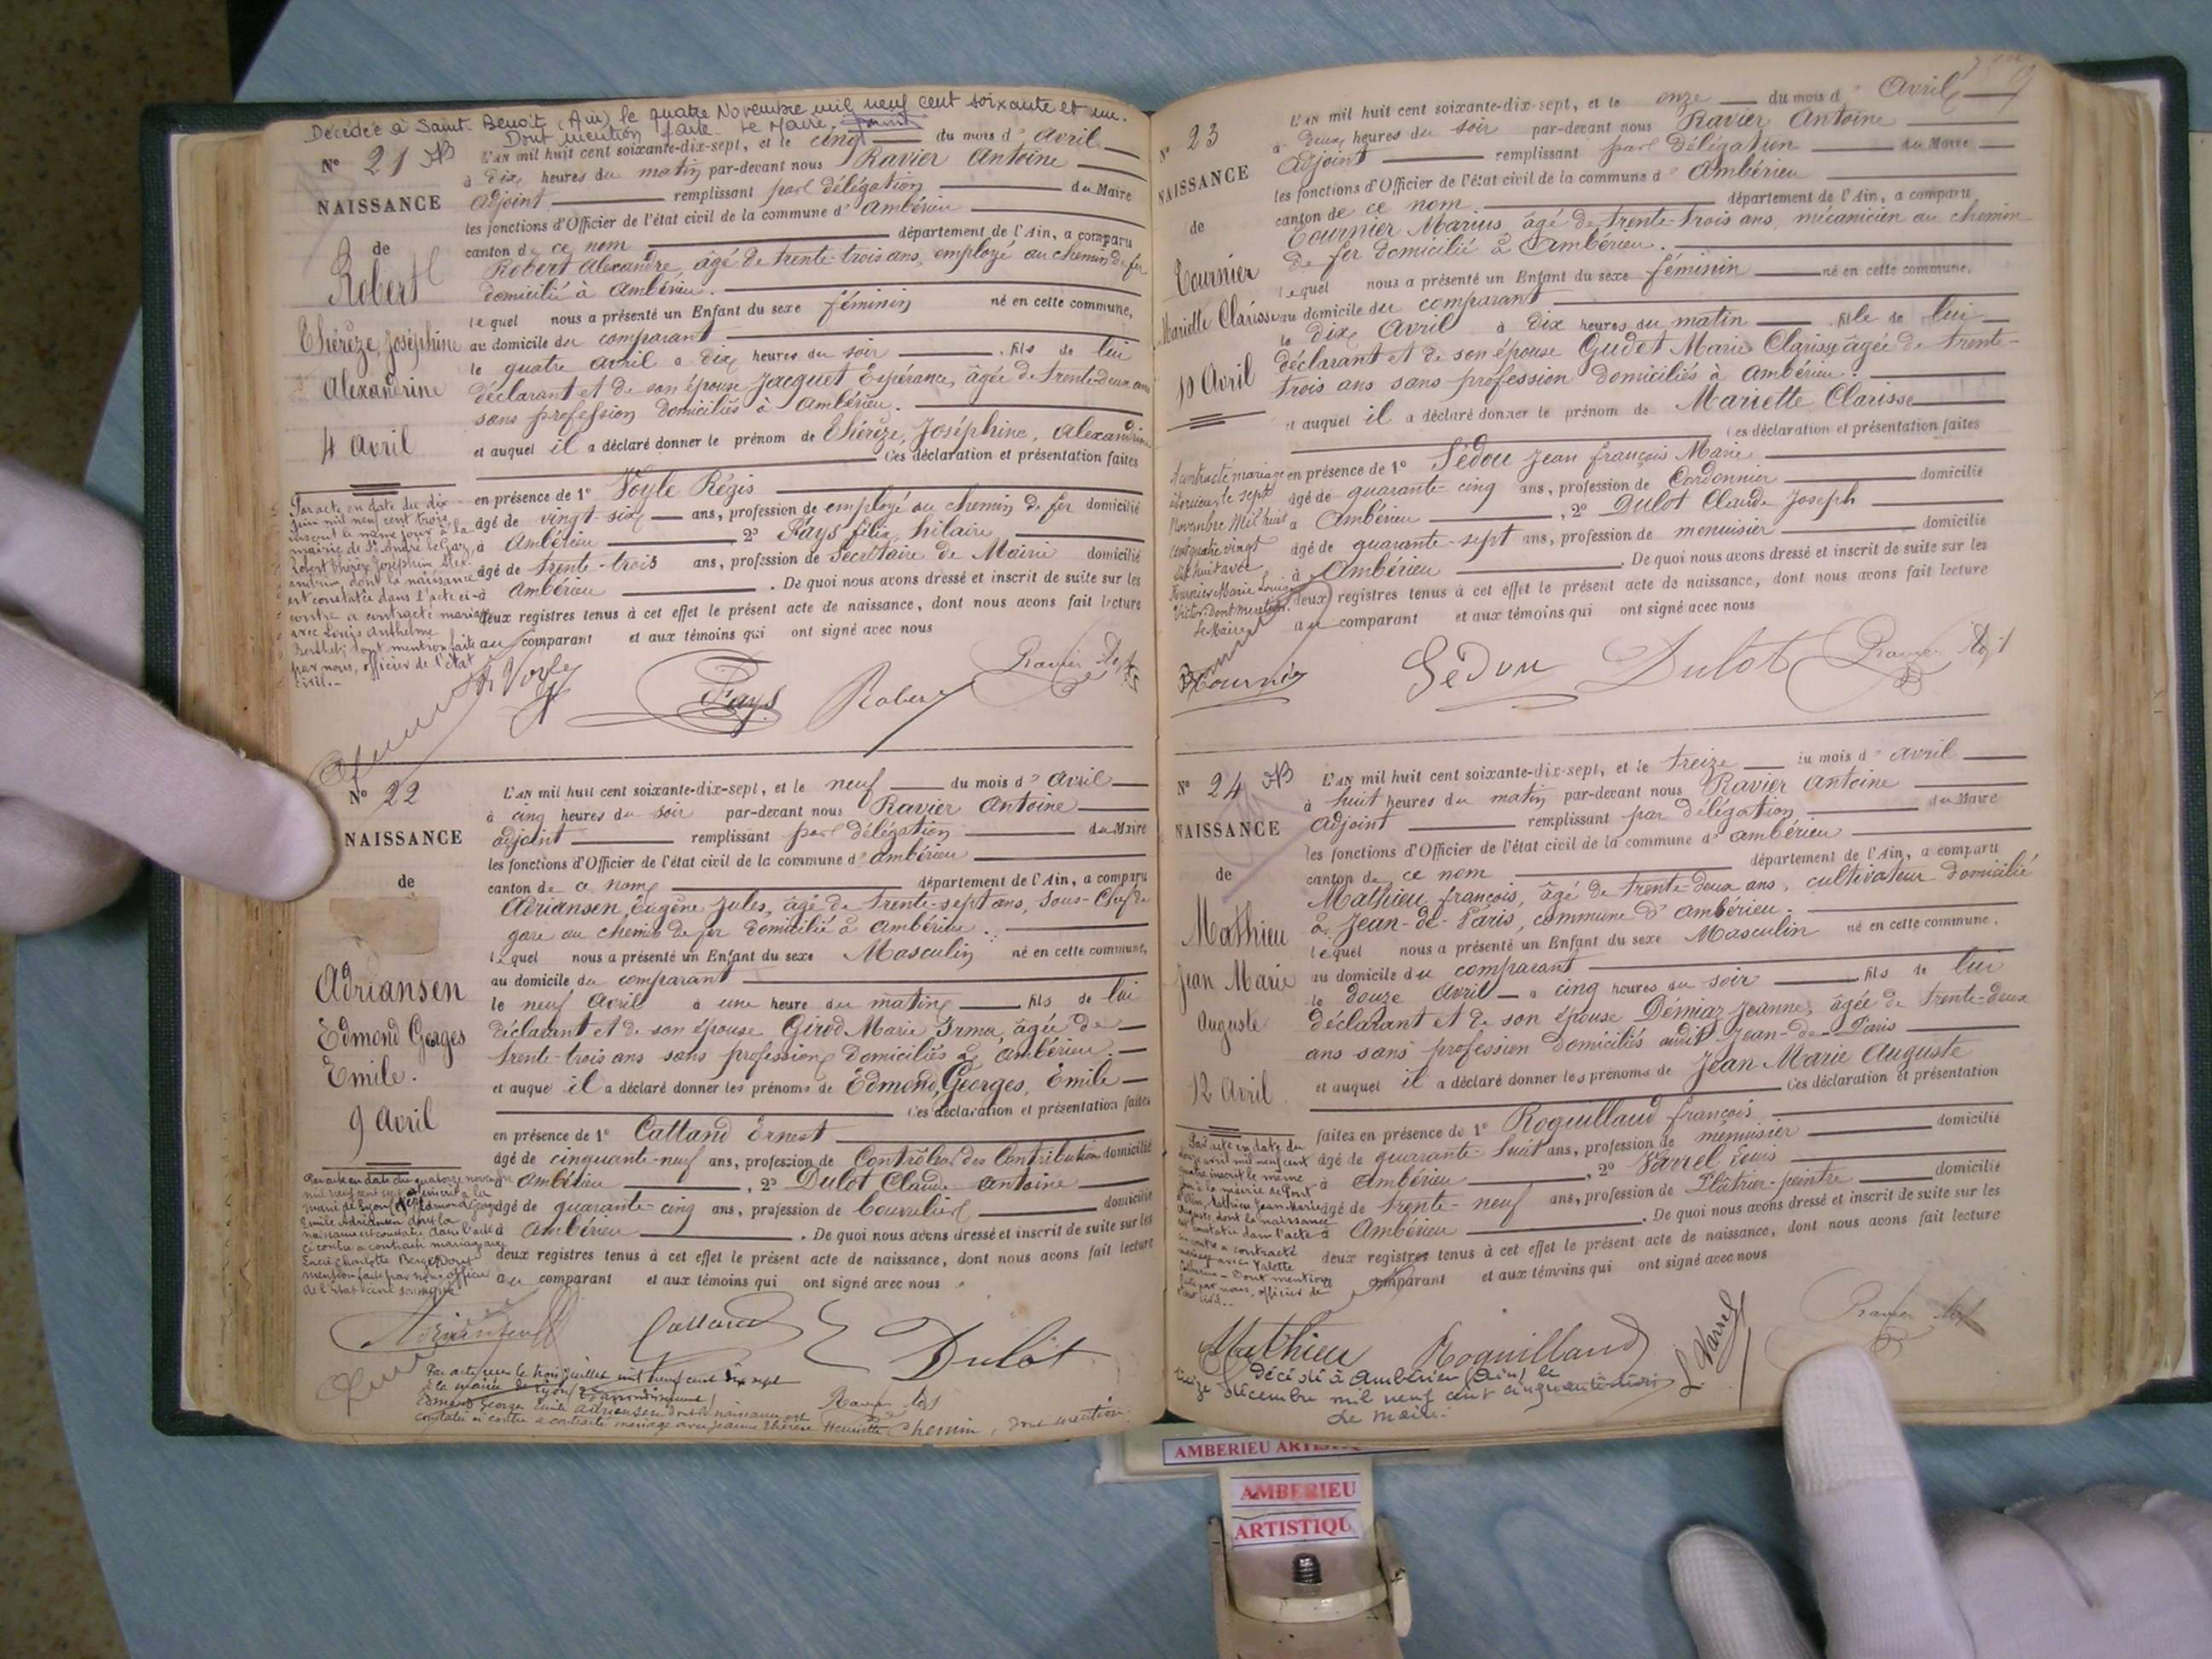 Décédée à Saint-Benoit (Ain) le quatre Novembre mil neuf cent soixante et un.
Dont mention faite. Le Maire,
N° 21
NAISSANCE
de
Robert
Thérèze, Joséphine
Alexandrine
4 avril
L'AN mil huit cent soixante-dix-sept, et le cinq du mois d' Avril
à dix heures du matin par-devant nous Ravier Antoine
adjoint remplissant par délégation du Maire
les fonctions d'Officier de l'état civil de la commune d' Ambérieu
canton de ce nom département de l'Ain, a comparu
Robert Alexandre, âgé de trente-trois ans, employé au chemin de fer
domicilié à Ambérieu.
lequel nous a présenté un Enfant du sexe féminin né en cette commune,
au domicile du comparant
le quatre avril à dix heures du soir fils de lui
déclarant et de son épouse Jacquet Espérance, âgée de trente-deux ans
sans profession domiciliés à Ambérieu.
et auquel il a déclaré donner le prénom de Thérèze, Joséphine, Alexandrine
Ces déclaration et présentation faites
en présence de 1° Voyle Régis
âgé de vingt-six ans, profession de employé au chemin de fer domicilié
à Ambérieu 2° Fays félix, hilaire
âgé de trente-trois ans, profession de Secrétaire de Mairie domicilié
à Ambérieu . De quoi nous avons dressé et inscrit de suite sur les
deux registres tenus à cet effet le présent acte de naissance, dont nous avons fait lecture
au comparant et aux témoins qui ont signé avec nous
Par acte en date du dix
juin mil neuf cent trois,
inscrit le même jour à la
mairie de St André le Gaz,
Robert Thérèze Joséphine Alex-
andrine, dont la naissance
est constatée dans l'acte ci-
contre a contracté mariage
avec Louis Anthelme
Berthet; dont mention faite
par nous, officier de l'état
civil.-
Voyle Fays Robert Ravier Adjt
N° 22
NAISSANCE
de
Adriansen
Edmond Georges
Emile.
9 Avril
L'AN mil huit cent soixante-dix-sept, et le neuf du mois d' Avril
à cinq heures du soir par-devant nous Ravier Antoine
adjoint remplissant par délégation du Maire
les fonctions d'Officier de l'état civil de la commune d' Ambérieu
canton de ce nom département de l'Ain, a comparu
Adriansen, Eugène Jules, âgé de trente-sept ans, Sous-Chef de
gare au chemin de fer domicilié à Ambérieu.
lequel nous a présenté un Enfant du sexe Masculin né en cette commune,
au domicile du comparant
le neuf Avril à une heure du matin fils de lui
déclarant et de son épouse Girod Marie Irma, âgée de
trente-trois ans sans profession domiciliés à Ambérieu.
et auquel il a déclaré donner les prénoms de Edmond, Georges, Emile
Ces déclaration et présentation faites
en présence de 1° Cattand Ernest
âgé de cinquante-neuf ans, profession de Contrôleur des Contributions domicilié
à Ambérieu , 2° Dulot Claude Antoine
âgé de quarante-cinq ans, profession de domicilié
à Ambérieu . De quoi nous avons dressé et inscrit de suite sur les
deux registres tenus à cet effet le présent acte de naissance, dont nous avons fait lecture
au comparant et aux témoins qui ont signé avec nous
Par acte en date du quatorze novembre
mil neuf cent sept
mairie de Lyon Edmond Georges
Emile Adriansen dont la
naissance est constatée dans l'acte
ci contre a contracté mariage avec
Charlotte Berger Dont
mention faite par nous officier
de l'Etat civil soussigné
Adriansen Cattand Dulot
Ravier Adjt
Par acte le trois juillet mil neuf cent dix sept
à la mairie de Lyon arrondissement
Edmond Georges Emile Adriansen dont la naissance est
constatée ci contre a contracté mariage avec Jeanne Thérèse Henriette Chemin, dont mention.
N° 23
NAISSANCE
de
Tournier
Mariette Clarisse
10 Avril
L'AN mil huit cent soixante-dix-sept, et le onze du mois d' Avril
à deux heures du soir par-devant nous Ravier Antoine
Adjoint remplissant par délégation du Maire
les fonctions d'Officier de l'état civil de la commune d' Ambérieu
canton de ce nom département de l'Ain, a comparu
Tournier Marius, âgé de trente-trois ans, mécanicien au chemin
de fer domicilié à Ambérieu.
lequel nous a présenté un Enfant du sexe féminin né en cette commune,
au domicile du comparant
le dix Avril à dix heures du matin fille de lui
déclarant et de son épouse Gudet Marie Clarisse âgée de trente-
trois ans sans profession domiciliés à Ambérieu.
et auquel il a déclaré donner le prénom de Mariette Clarisse
Ces déclaration et présentation faites
en présence de 1° Sédou Jean françois Marie
âgé de quarante-cinq ans, profession de Cordonnier domicilié
à Ambérieu , 2° Dulot Claude Joseph
âgé de quarante-sept ans, profession de menuisier domicilié
à Ambérieu . De quoi nous avons dressé et inscrit de suite sur les
deux registres tenus à cet effet le présent acte de naissance, dont nous avons fait lecture
au comparant et aux témoins qui ont signé avec nous
A contracté mariage
le sept
Novembre Mil huit
cent quatre vingt
dix huit avec
Fournier Marie Louis
Victor. dont mention.
Le Maire
Tournier Sédou Dulot Ravier Adjt
N° 24
NAISSANCE
de
Mathieu
Jean Marie
Auguste
12 Avril
L'AN mil huit cent soixante-dix-sept, et le treize du mois d' Avril
à huit heures du matin par-devant nous Ravier Antoine
adjoint remplissant par délégation du Maire
les fonctions d'Officier de l'état civil de la commune d' Ambérieu
canton de ce nom département de l'Ain, a comparu
Mathieu françois, âgé de trente-deux ans, cultivateur domicilié
à Jean-de-Paris, commune d'Ambérieu.
lequel nous a présenté un Enfant du sexe Masculin né en cette commune,
au domicile du comparant
le douze Avril à cinq heures du soir fils de lui
déclarant et de son épouse Démiaz Jeanne, âgée de trente-deux
ans sans profession domiciliés audit Jean-de-Paris
et auquel il a déclaré donner les prénoms de Jean Marie Auguste
Ces déclaration et présentation
faites en présence de 1° Roquillaud françois
âgé de quarante-huit ans, profession de menuisier domicilié
à Ambérieu , 2° Varrel Louis
âgé de trente-neuf ans, profession de Plâtrier-peintre domicilié
à Ambérieu . De quoi nous avons dressé et inscrit de suite sur les
deux registres tenus à cet effet le présent acte de naissance, dont nous avons fait lecture
au comparant et aux témoins qui ont signé avec nous
Par acte en date du
douze avril mil neuf cent
quatre inscrit le même
jour à la mairie de Pont
d'Ain, Mathieu Jean-Marie
Auguste, dont la naissance
est constatée dans l'acte
ci-contre a contracté
mariage avec Valette
Catherine - Dont mention
faite par nous, officier de
l'état civil.-
Mathieu Roquillaud L. Varrel Ravier Adjt
Décédé à Ambérieu (Ain) le
treize décembre mil neuf cent cinquante
Le Maire.
AMBERIEU
AMBERIEU
ARTISTIQU